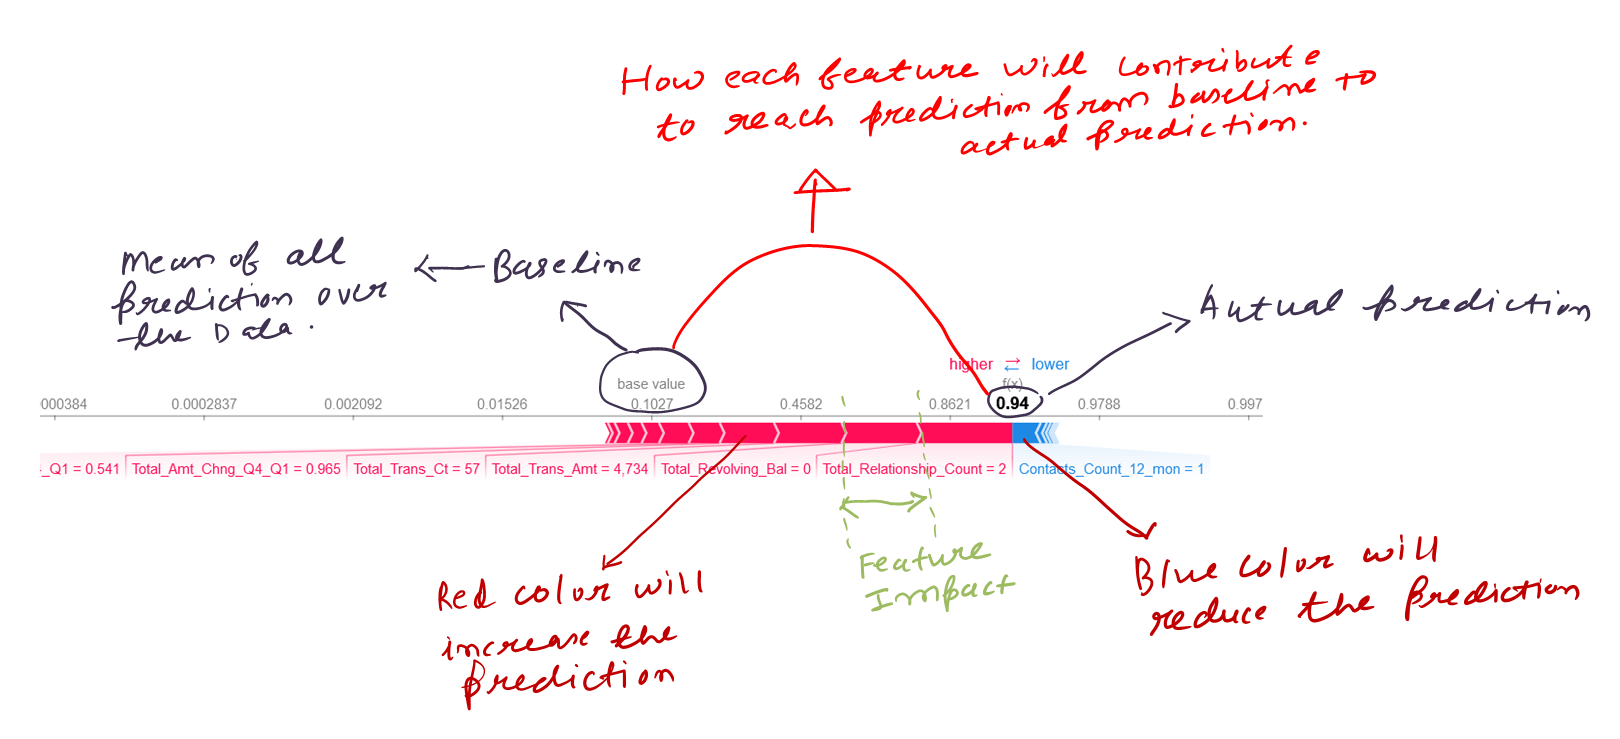 How each feature will contribute
to reach prediction from baseline to
actual prediction.
Mean of all
prediction over
the Data.
Baseline
Autual prediction
higher ⇄ lower
base value
f(x)
000384 0.0002837 0.002092 0.01526 0.1027 0.4582 0.8621 0.94 0.9788 0.997
_Q1 = 0.541 Total_Amt_Chng_Q4_Q1 = 0.965 Total_Trans_Ct = 57 Total_Trans_Amt = 4,734 Total_Revolving_Bal = 0 Total_Relationship_Count = 2 Contacts_Count_12_mon = 1
Feature
Impact
Red color will
increase the
prediction
Blue color will
reduce the prediction